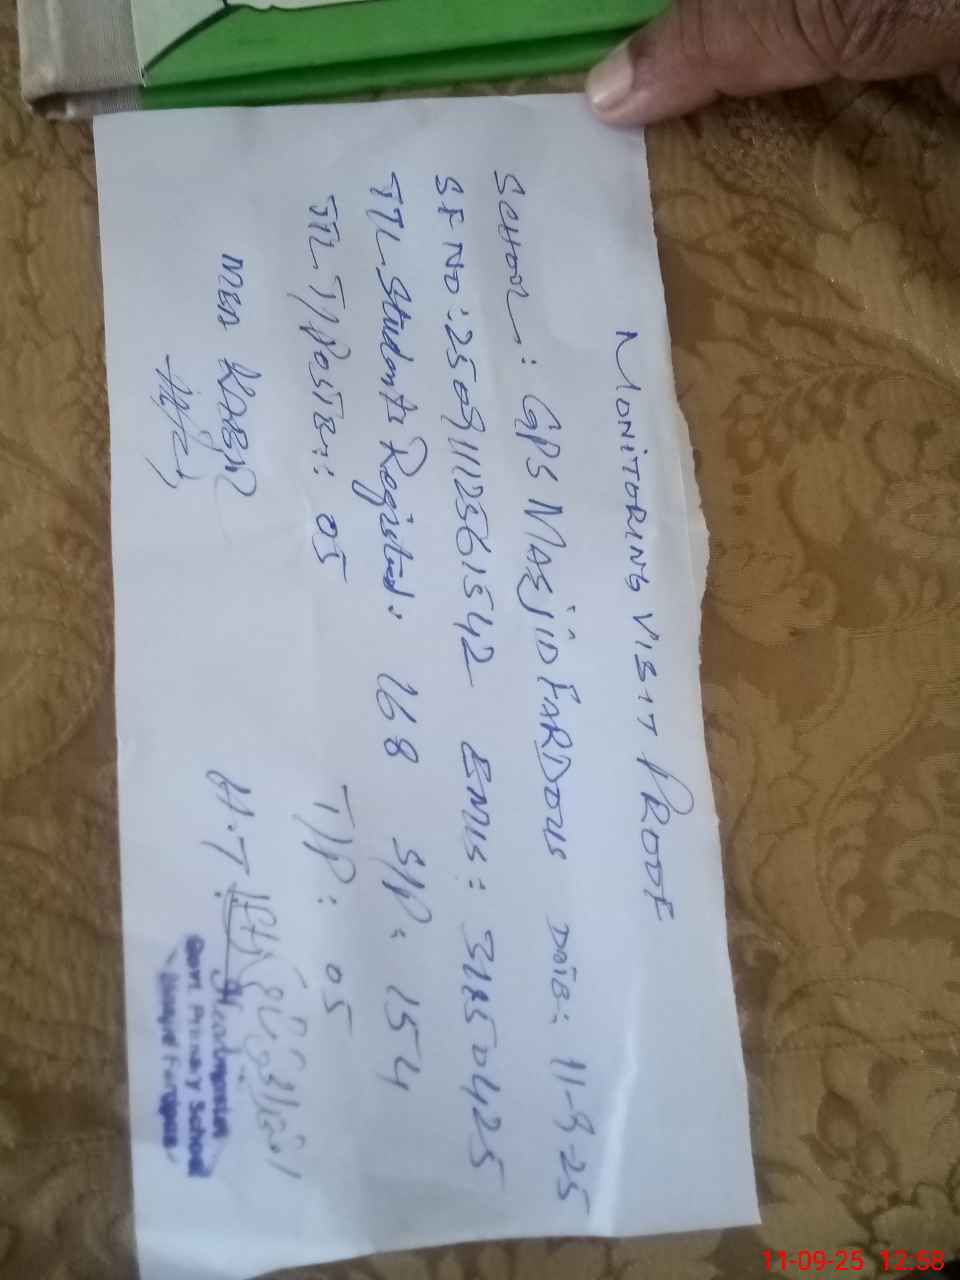 MONITORING VISIT PROOF
SCHOOL: GPS MASJID FARDOUS DATE: 11-9-25
SF NO: 25091112561542 EMIS: 31150425
TTL Students Registered: 168 S/P: 154
TTL T/POSTED: 05 T/P: 05
MEA
H.T
Headmaster
Govt: Primary School
11-09-25 12:58